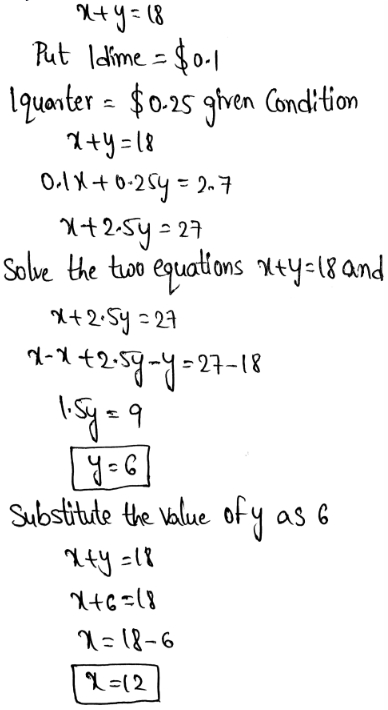 x+y=18
Put 1dime = $0.1
1quarter = $0.25 given Condition
x+y=18
0.1x+0.25y = 2.7
x+2.5y = 27
Solve the two equations x+y=18 and
x+2.5y = 27
x-x+2.5y-y=27-18
1.5y = 9
y=6
Substitute the value of y as 6
x+y =18
x+6=18
x=18-6
x=12